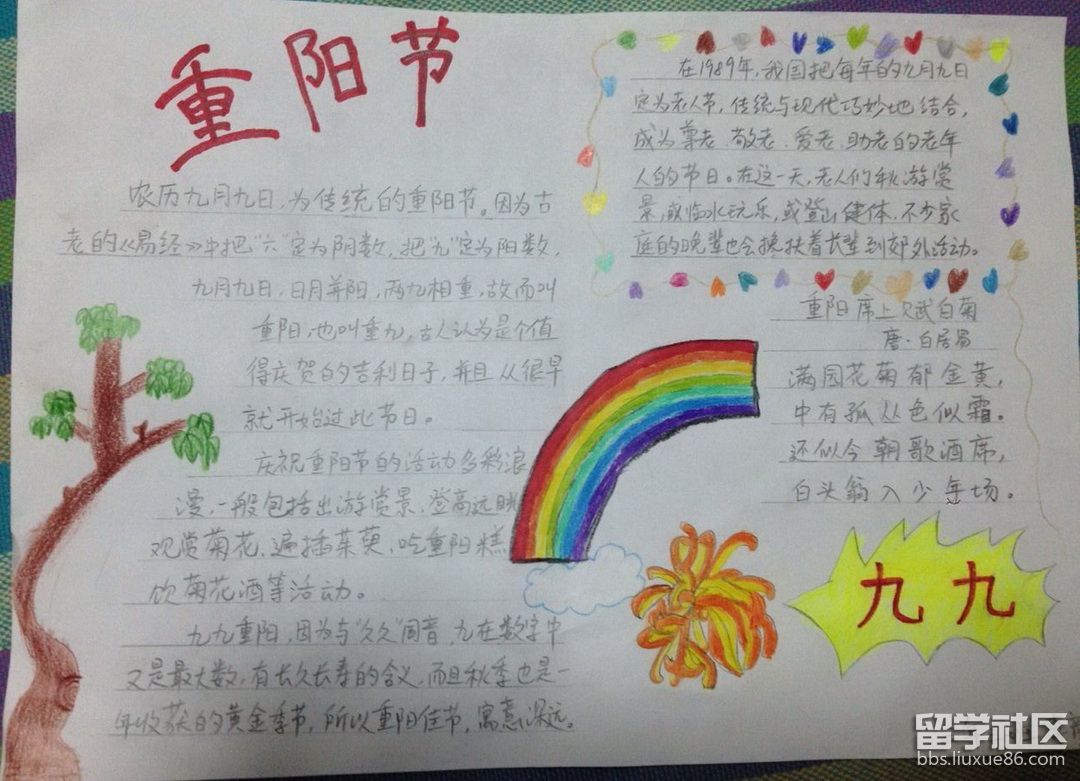 重阳节
农历九月九日,为传统的重阳节。因为古
老的《易经》中把"六"定为阴数,把"九"定为阳数,
九月九日,日月并阳,两九相重,故而叫
重阳,也叫重九,古人认为是个值
得庆贺的吉利日子,并且从很早
就开始过此节日。
庆祝重阳节的活动多彩浪
漫,一般包括出游赏景、登高远眺
观赏菊花、遍插茱萸、吃重阳糕、
饮菊花酒等活动。
九九重阳,因为与"久久"同音,九在数字中
又是最大数,有长久长寿的含义,而且秋季也是一
年收获的黄金季节,所以重阳佳节,寓意深远。
在1989年,我国把每年的九月九日
定为老人节,传统与现代巧妙地结合,
成为尊老、敬老、爱老、助老的老年
人的节日。在这一天,老人们秋游赏
景,或临水玩乐,或登山健体,不少家
庭的晚辈也会搀扶着长辈到郊外活动。
重阳席上赋白菊
唐·白居易
满园花菊郁金黄,
中有孤丛色似霜。
还似今朝歌酒席,
白头翁入少年场。
九九
留学社区
bbs.liuxue86.com